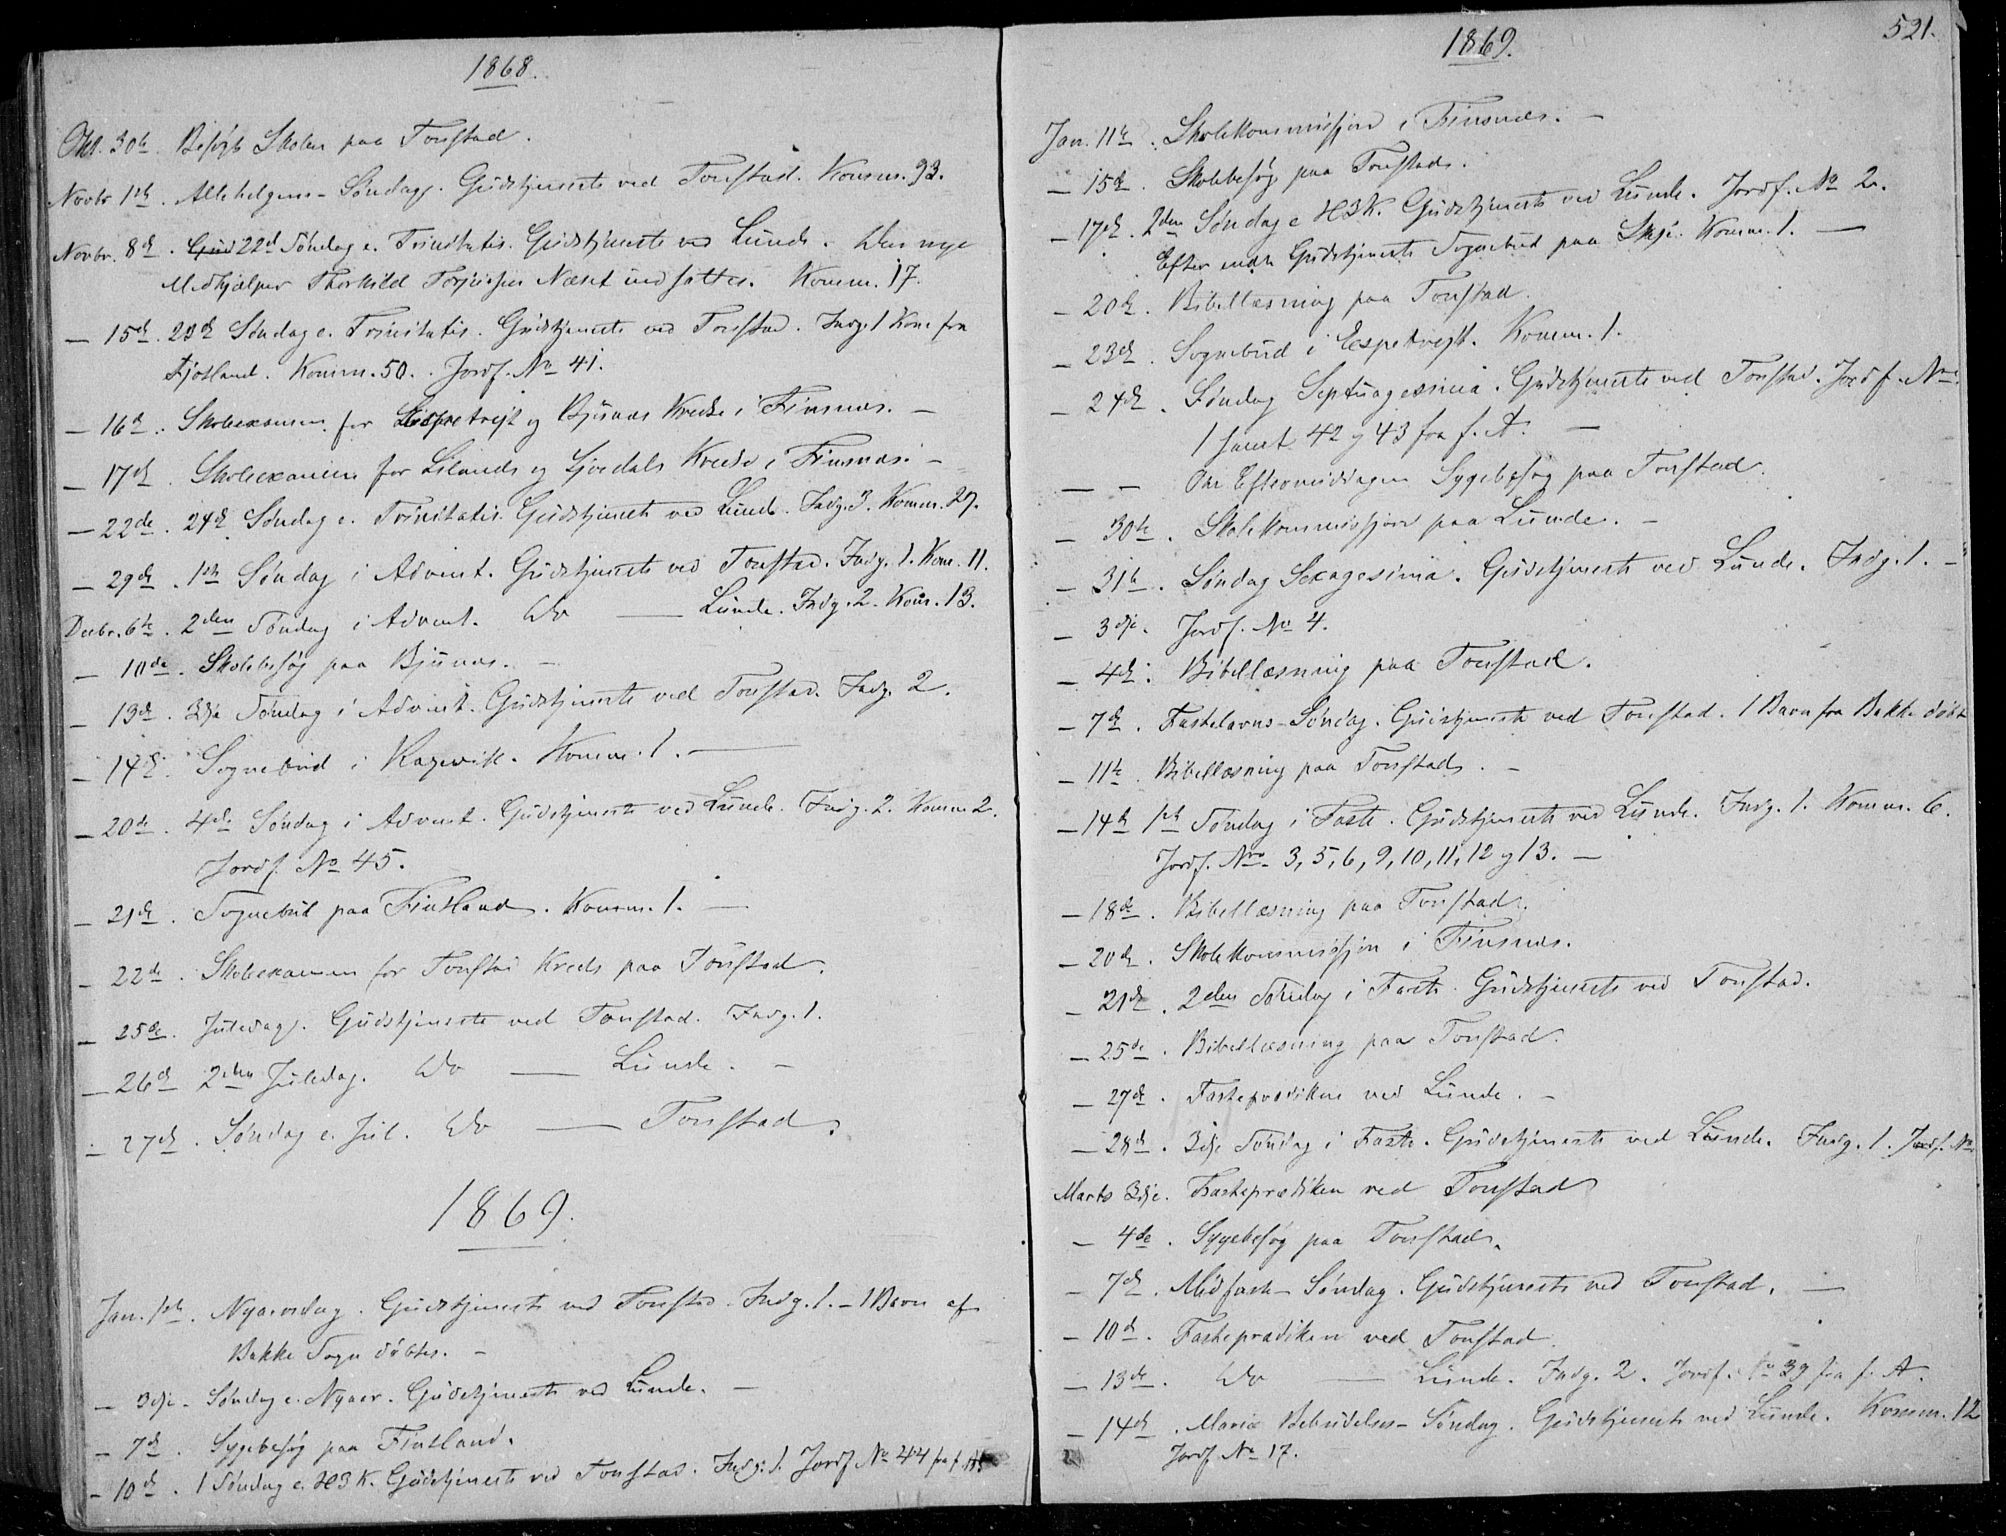 1868.
Okt. 30te. Besøgt Skolen paa Tonstad.
Novbr. 1ste. Allehelgens-Søndag. Gudstjeneste ved Tonstad. Komm. 93.
Novbr. 8de. 22de Søndag e. Trinitatis. Gudstjeneste ved Lunde. Den nye
Medhjælper Thorkild Næset indsattes. Komm. 17.
— 15de. 23de Søndag e. Trinitatis. Gudstjeneste ved Tonstad. Indg. 1 Kone fra
Fjotland. Komm. 50. Jordf. No 41.
— 16de. Skoleexamen for Espetvejt og Bjunæs Kredse i Finsnæs. —
— 17de. Skoleexamen for Lilands og Kredse i Finsnæs. —
— 22de. 24de Søndag e. Trinitatis. Gudstjeneste ved Lunde. Indg. 3. Komm. 27.
— 29de. 1ste Søndag i Advent. Gudstjeneste ved Tonstad. Indg. 1. Kom. 11.
Decbr. 6te. 2den Søndag i Advent. Do — Lunde. Indg. 2. Kom. 13.
— 10de. Skolebesøg paa Bjunæs. —
— 13de. 3dje Søndag i Advent. Gudstjeneste ved Tonstad. Indg. 2.
— 14de. Sognebud i Komm. 1. —
— 20de. 4de Søndag i Advent. Gudstjeneste ved Lunde. Indg. 2. Komm 2.
Jordf. No 45.
— 21de. Sognebud paa Fintland. Komm. 1. —
— 22de. Skoleexamen for Tonstad Kreds paa Tonstad.
— 25de. Juledag. Gudstjeneste ved Tonstad. Indg. 1.
— 26de 2den Juledag. Do — Lunde. —
— 27de. Søndag e. Jul. Do — Tonstad.
1869.
Jan. 1ste. Nyaarsdag. Gudstjeneste ved Tonstad. Indg. 1. — 1 Barn af
Bakke Sogn døbtes. —
— 3dje. Søndag e. Nyaar. Gudstjeneste ved Lunde. —
— 7de. Sygebesøg paa Fintland.
— 10de. 1 Søndag e. H3K. Gudstjeneste ved Tonstad. Indg. 1. Jordf. No 44 fra f. A.
521.
1869.
Jan. 11te. Skolekommissjon i Finsnæs. —
— 15de. Skolebesøg paa Tonstad.
— 17de. 2den Søndag e H3K. Gudstjeneste ved Lunde. Jordf. No 2.
Efter endt Gudstjeneste Sognebud paa Komm. 1. —
— 20de. Bibellæsning paa Tonstad.
— 23de. Sognebud i Espetvejt. Komm. 1.
— 24de. Søndag Septuagesima. Gudstjeneste ved Tonstad. Jordf. No
1 samt 42 og 43 fra f. A. —
— — Om Eftermiddagen Sygebesøg paa Tonstad.
— 30te. Skolekommissjon paa Lunde. —
— 31te. Søndag Sexagesima. Gudstjeneste ved Lunde. Indg. 1. —
— 3dje. Jordf. No 4.
— 4de. Bibellæsning paa Tonstad.
— 7de. Fastelavns-Søndag. Gudstjeneste ved Tonstad. 1 Barn fra Bakke døbt
— 11te. Bibellæsning paa Tonstad. —
— 14de 1ste Søndag i Faste. Gudstjeneste ved Lunde. Indg. 1. Komm. 6.
Jordf. No 3, 5, 6, 9, 10, 11, 12 og 13. —
— 18de. Bibellæsning paa Tonstad.
— 20de. Skolekommissjon i Finsnæs.
— 21de. 2den Søndag i Faste. Gudstjeneste ved Tonstad.
— 25de. Bibellæsning paa Tonstad.
— 27de. Fasteprædiken ved Lunde. —
— 28de. 3dje Søndag i Faste. Gudstjeneste ved Lunde. Indg. 1. Jordf. No
Marts 3dje. Fasteprædiken ved Tonstad
— 4de. Sygebesøg paa Tonstad.
— 7de. Midfaste-Søndag. Gudstjeneste ved Tonstad. —
— 10de. Fasteprædiken ved Tonstad
— 13de. Do — Lunde. Indg. 2. Jordf. No 39 fra f. A.
— 14de. Mariæ Bebudelses-Søndag. Gudstjeneste ved Lunde. Komm. 12
Jordf. No 17.